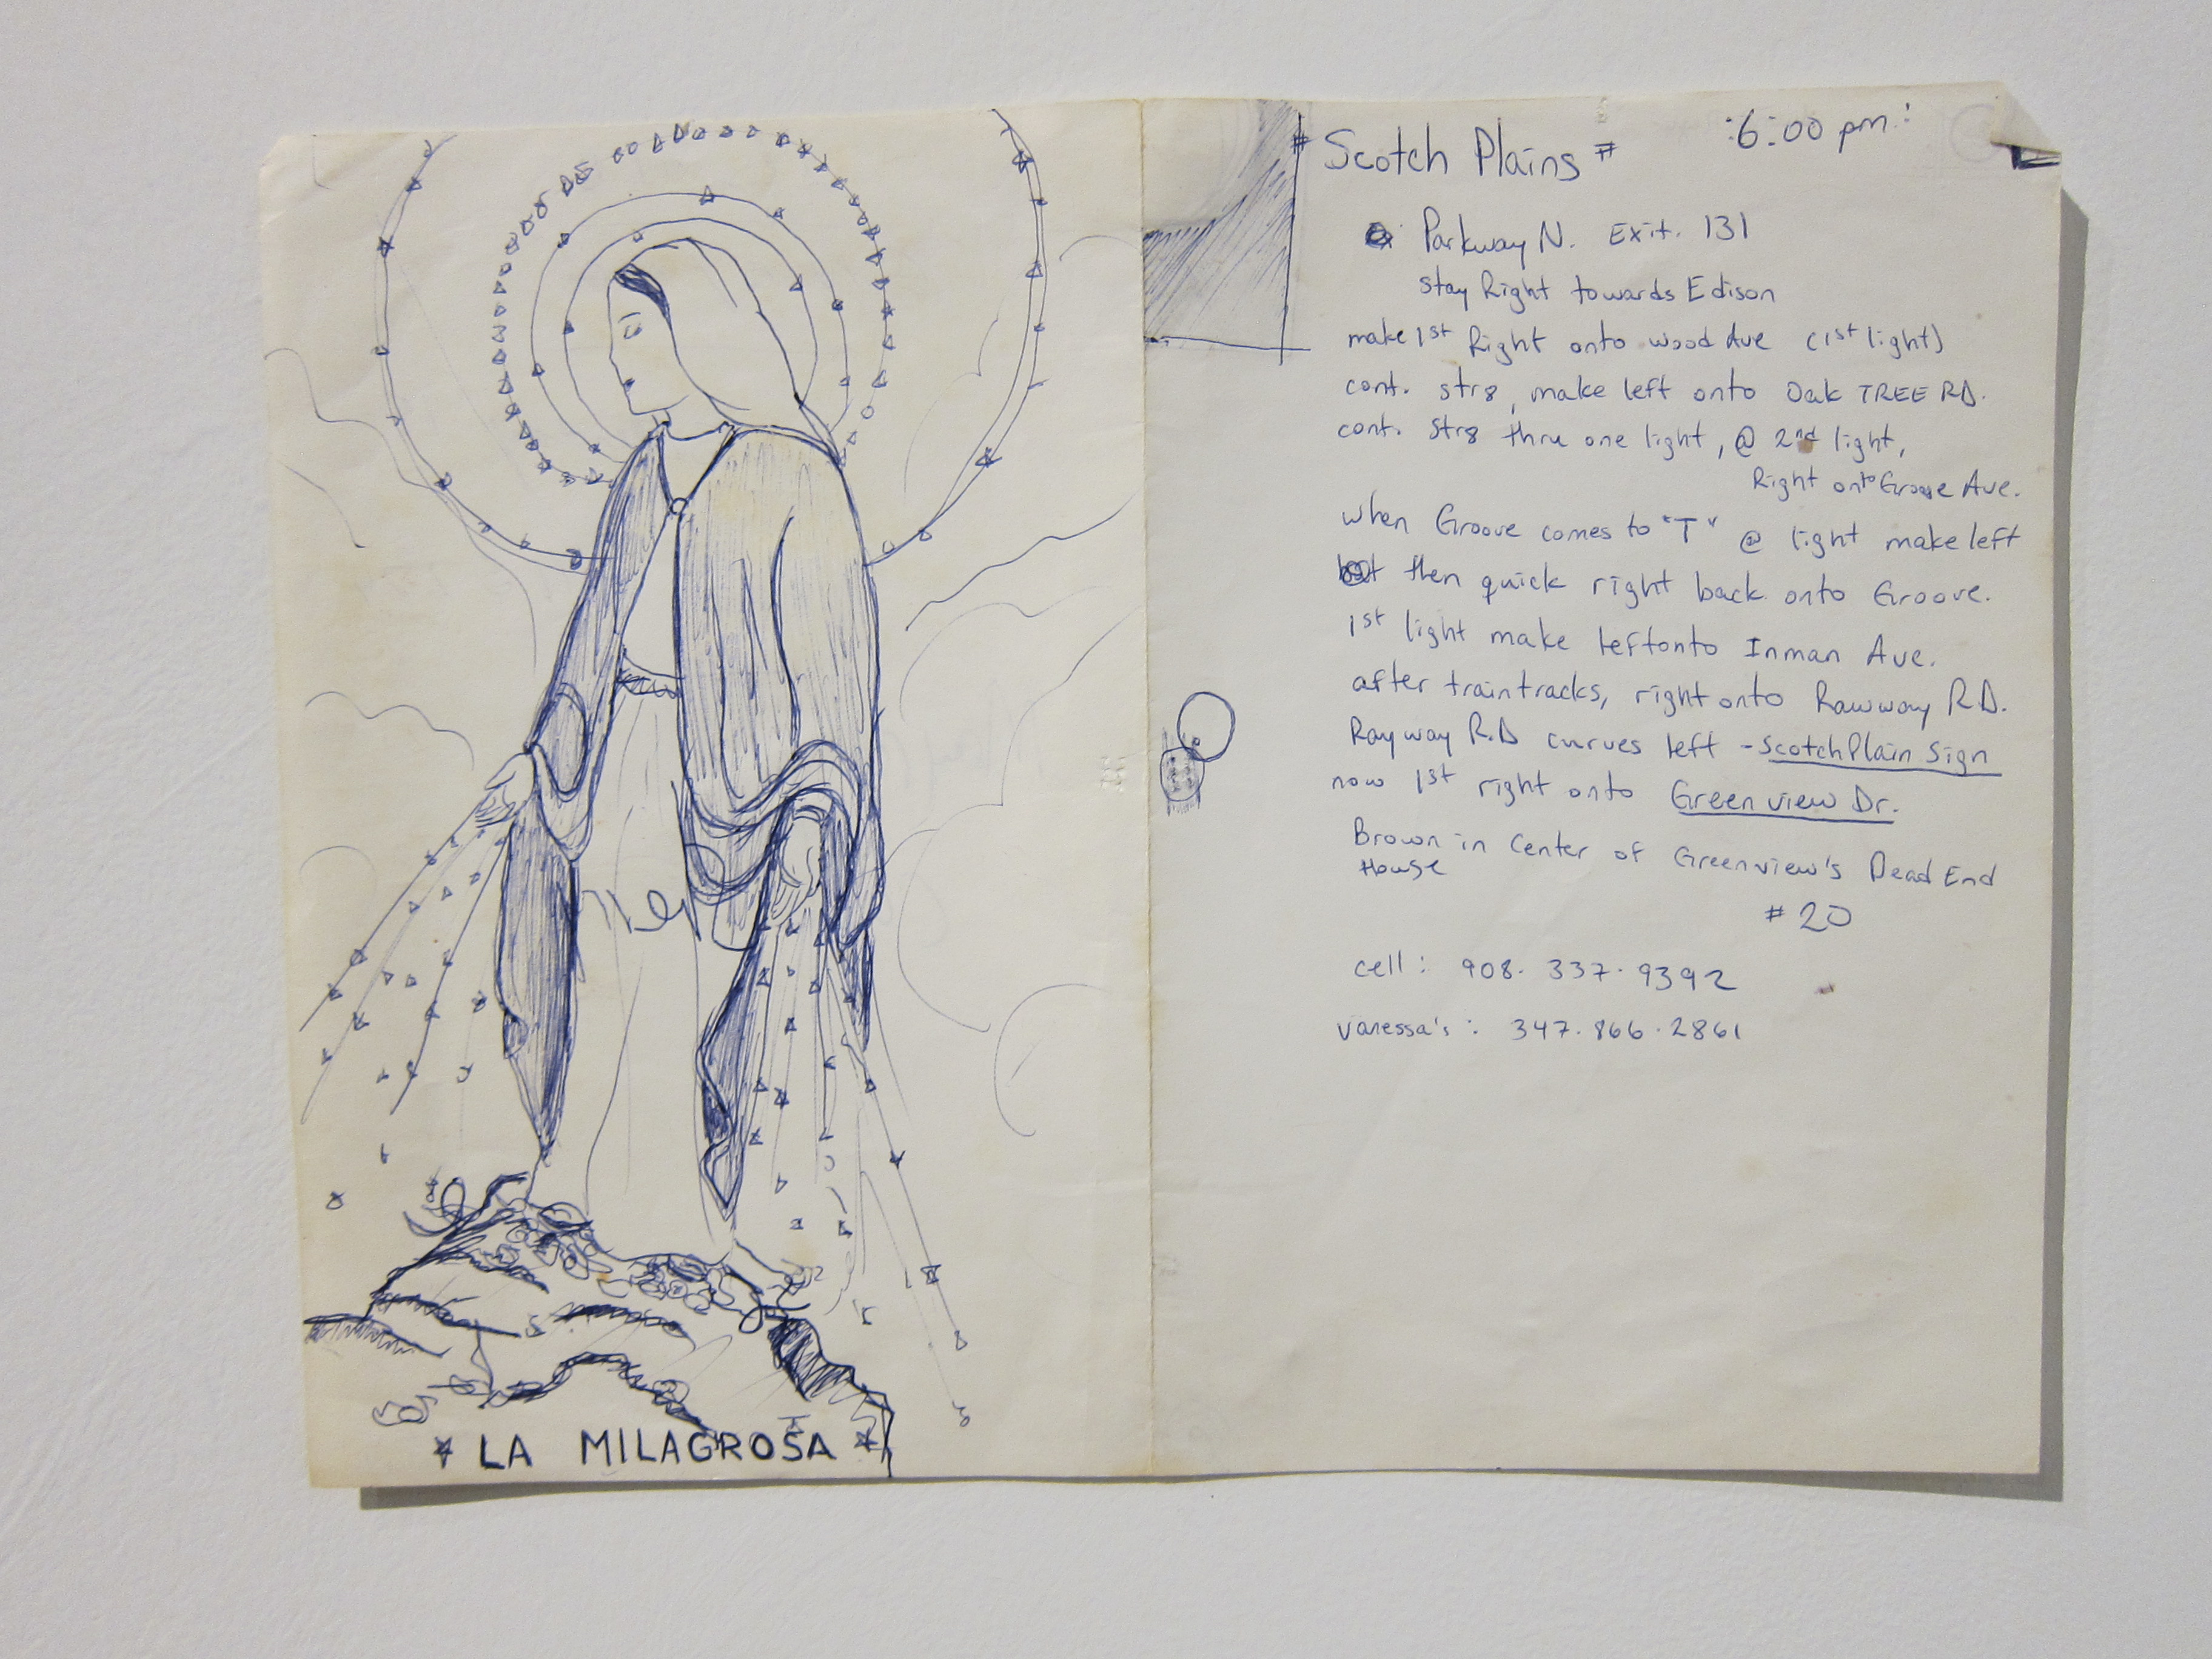 LA MILAGROSA
# Scotch Plains #
:6:00 pm:
Parkway N. Exit. 131
stay Right towards Edison
make 1st Right onto wood Ave (1st light)
cont. str8, make left onto Oak TREE RD.
cont. str8 thru one light, @ 2nd light,
Right onto Groove Ave.
when Groove comes to "T" @ light make left
then quick right back onto Groove.
1st light make left onto Inman Ave.
after train tracks, right onto Rawway RD.
Rayway R.D curves left - Scotch Plain Sign
now 1st right onto Greenview Dr.
Brown in center of Greenview's Dead End
House
# 20
cell: 908. 337. 9392
vanessa's: 347. 866. 2861